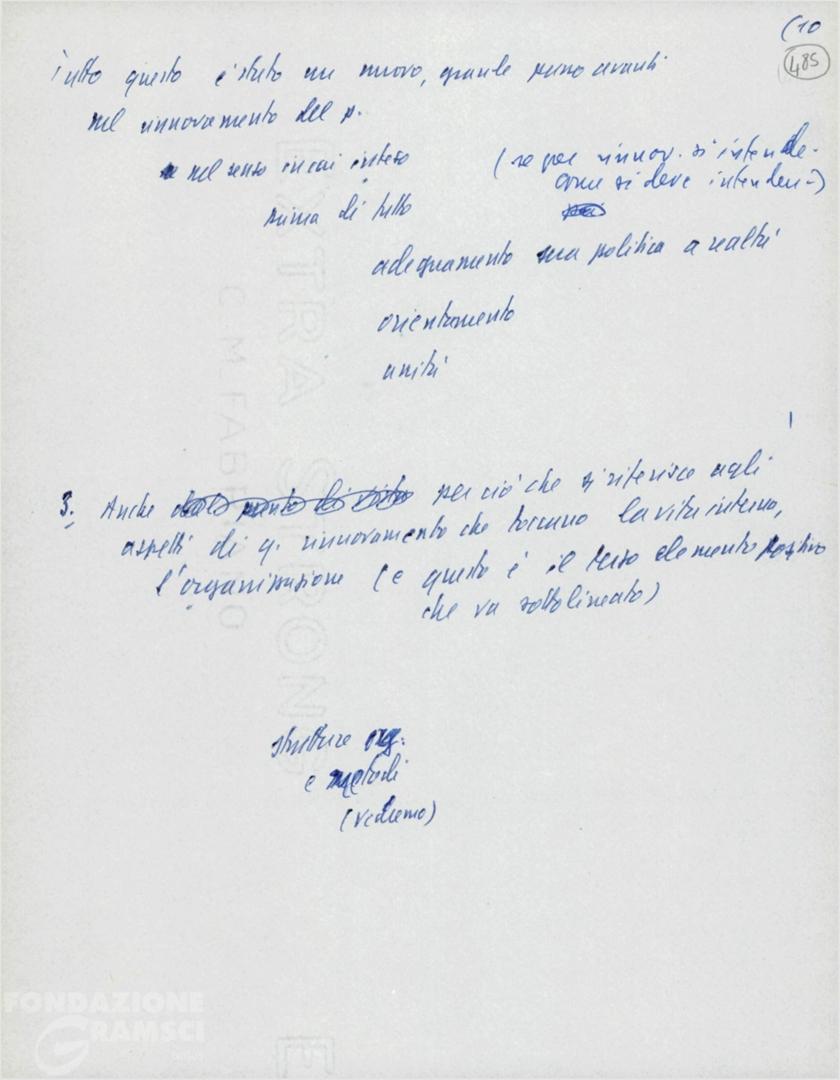 (10
485
Tutto questo è stato un nuovo, grande passo avanti
nel rinnovamento del p.
nel senso in cui inteso
(se per rinnov. si intende -
come si deve intendere -)
prima di tutto
adeguamento sua politica a realtà
orientamento
unità
3. Anche dal punto di vista per ciò che si riferisce agli
aspetti di q. rinnovamento che toccano la vita interna,
l'organizzazione (e questo è il terzo elemento positivo
che va sottolineato)
strutture org.
e metodi
(vedremo)
EXTRA STRONG
C.M. FABRIANO
FONDAZIONE
GRAMSCI
E